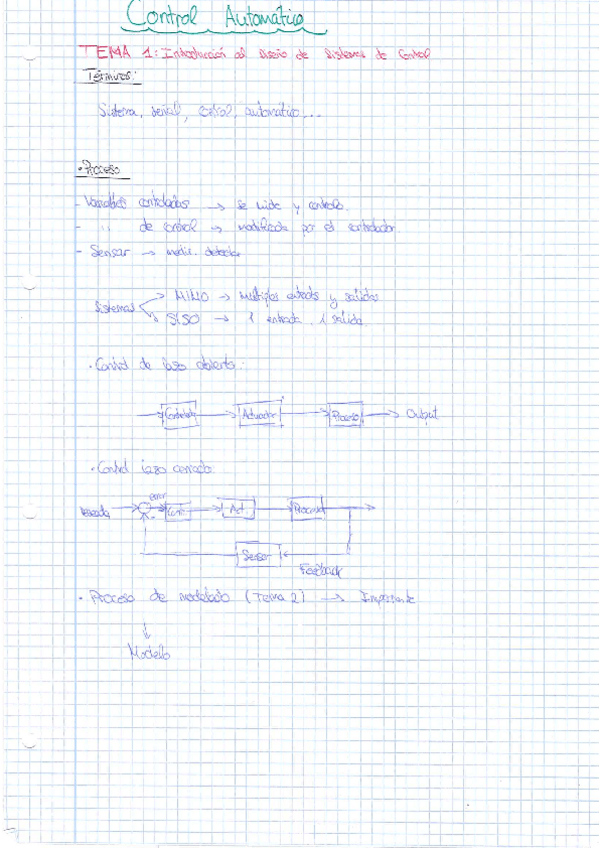 Control Automático
TEMA 1: Introducción al Diseño de Sistemas de Control
Términos:
Sistema, señal, control, automático...
• Proceso
- Variables controladas → se mide y controla.
- " de control → modificada por el controlador
- Sensar → medir, detectar
Sistemas
MIMO → múltiples entradas y salidas
SISO → 1 entrada, 1 salida.
• Control de lazo abierto:
Controlador Actuador Proceso → Output
• Control lazo cerrado
error
Cont. Act. Proceso
Sensor
Feedback
• Proceso de modelado (Tema 2) → Importante
Modelo